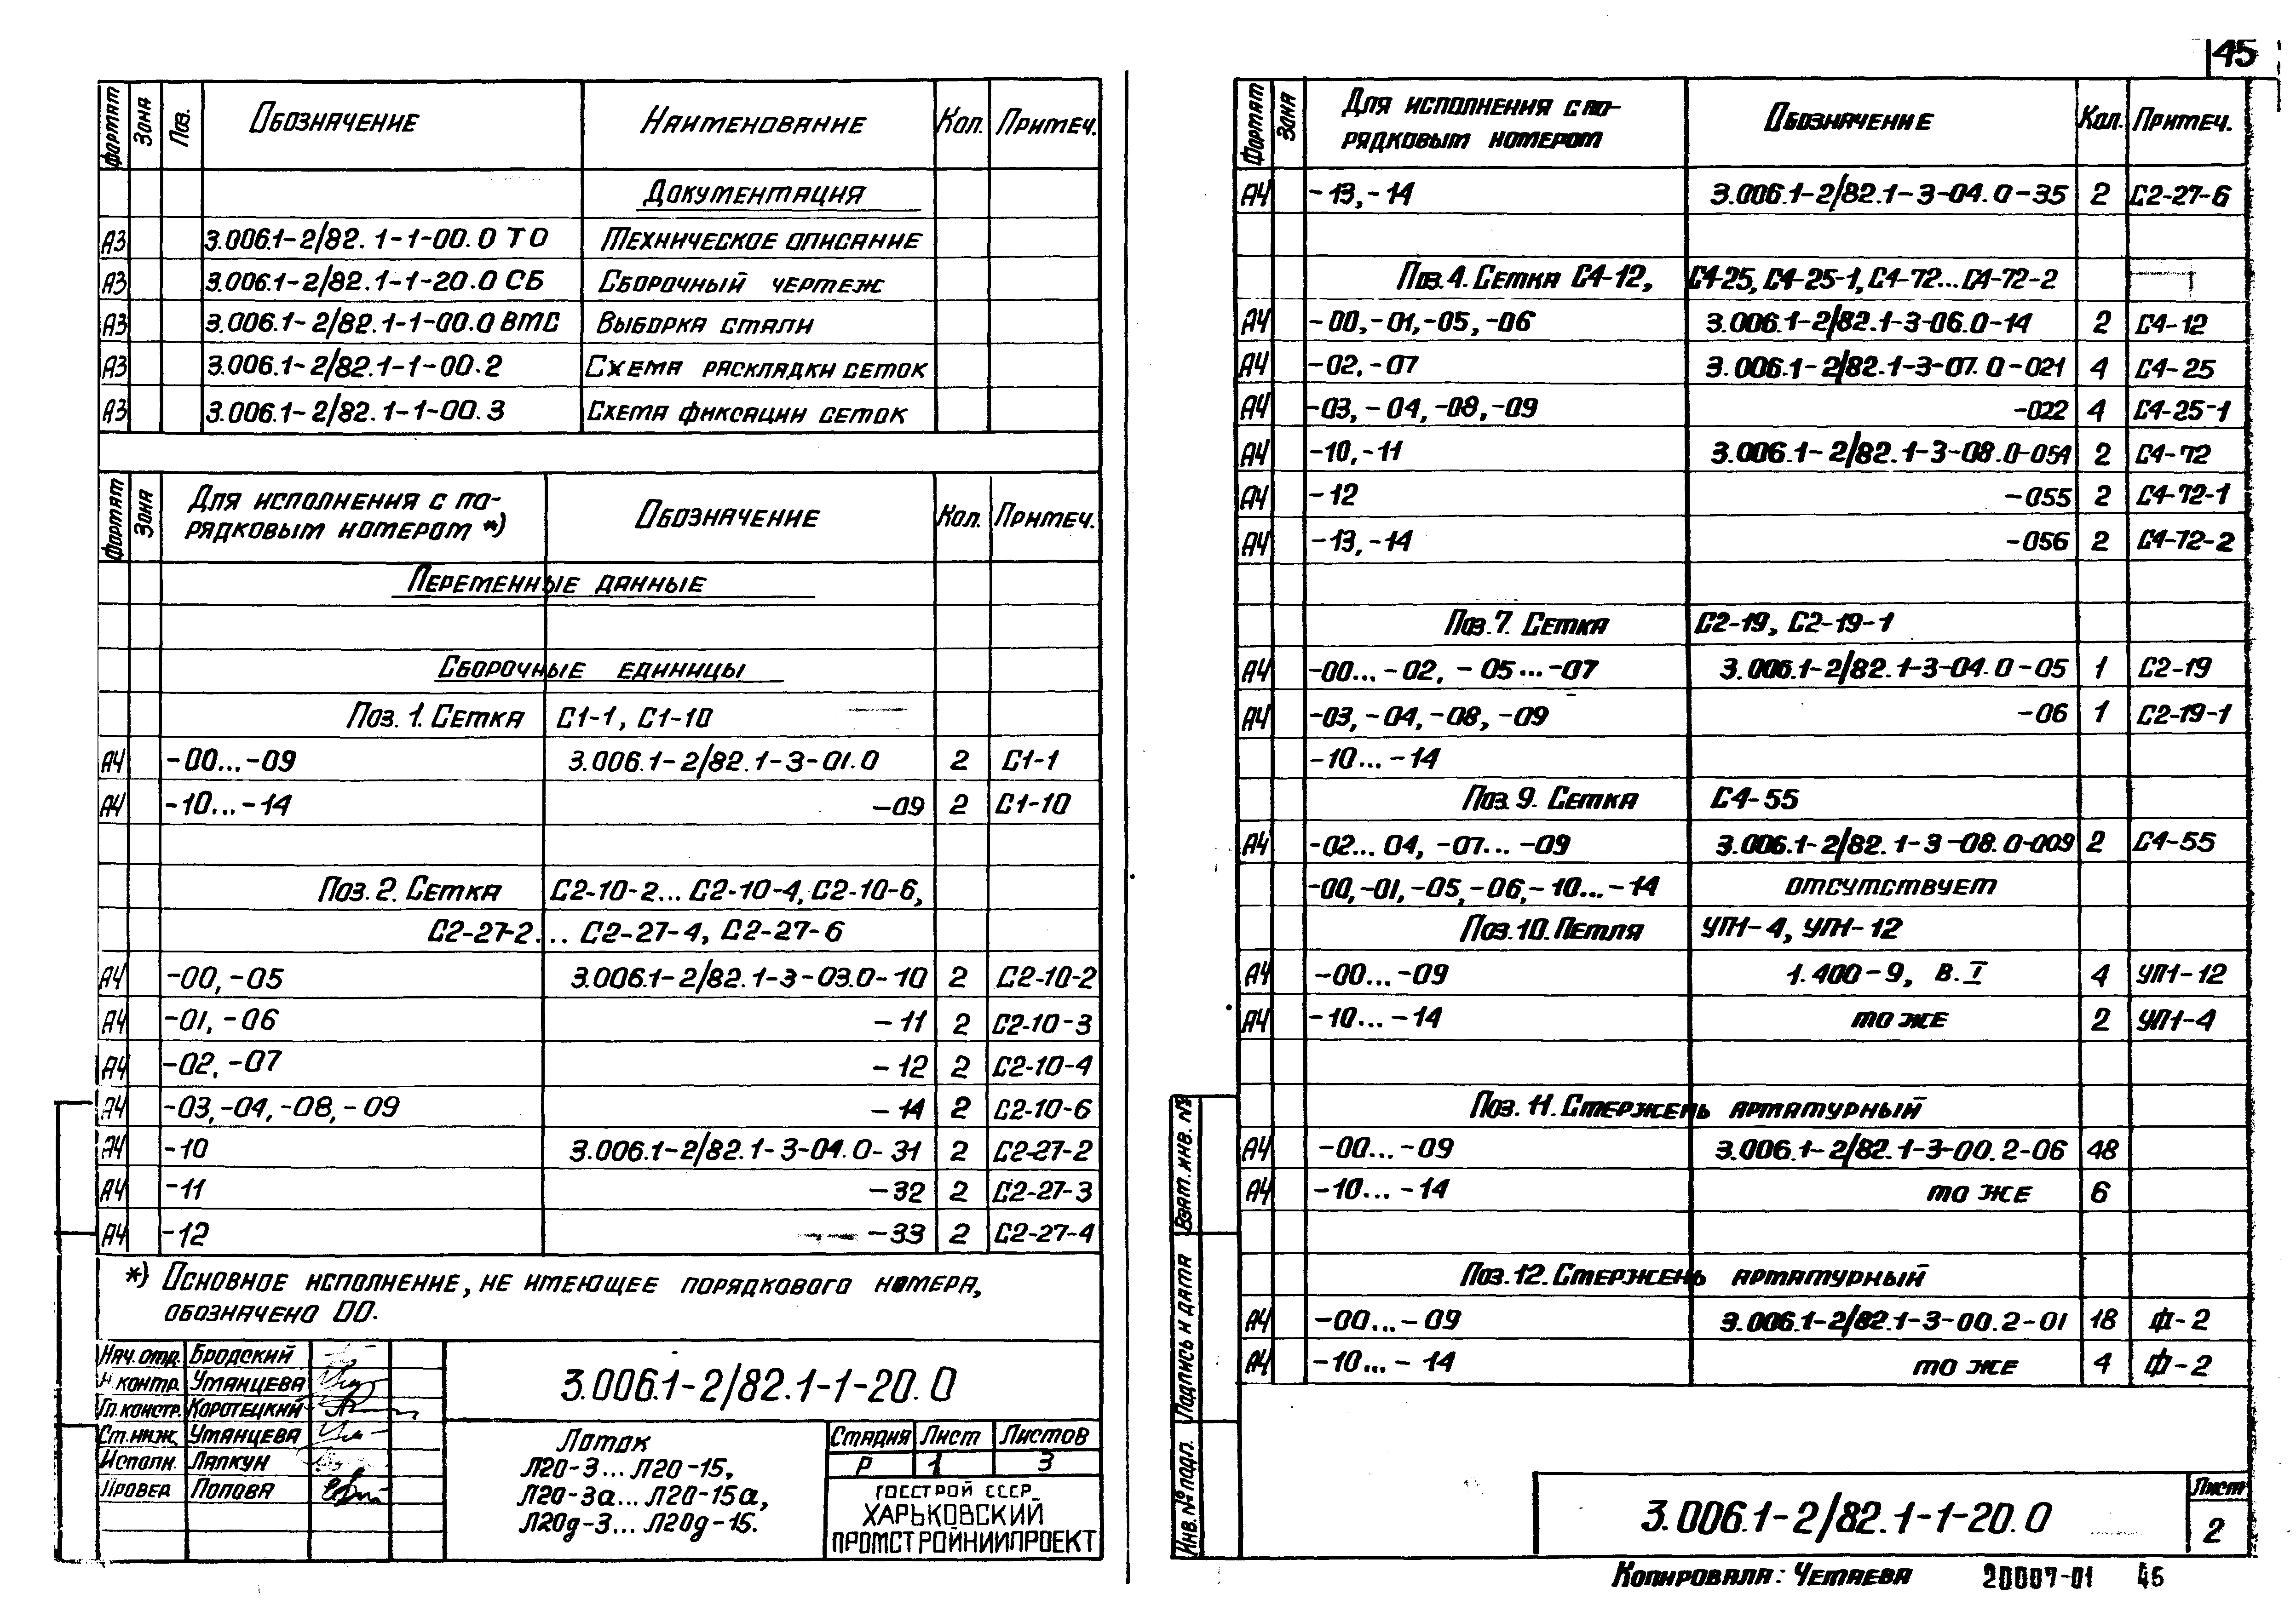 45
Формат Зона Поз. Обозначение Наименование Кол. Примеч.
Документация
А3 3.006.1-2/82.1-1-00.0 ТО Техническое описание
А3 3.006.1-2/82.1-1-20.0 СБ Сборочный чертеж
А3 3.006.1-2/82.1-1-00.0 ВМС Выборка стали
А3 3.006.1-2/82.1-1-00.2 Схема раскладки сеток
А3 3.006.1-2/82.1-1-00.3 Схема фиксации сеток
Формат Зона Для исполнения с по- Обозначение Кол. Примеч.
рядковым номером *)
Переменные данные
Сборочные единицы
Поз. 1. Сетка С1-1, С1-10
А4 -00...-09 3.006.1-2/82.1-3-01.0 2 С1-1
А4 -10...-14 -09 2 С1-10
Поз. 2. Сетка С2-10-2... С2-10-4, С2-10-6,
С2-27-2... С2-27-4, С2-27-6
А4 -00,-05 3.006.1-2/82.1-3-03.0-10 2 С2-10-2
А4 -01,-06 -11 2 С2-10-3
А4 -02,-07 -12 2 С2-10-4
А4 -03,-04,-08,-09 -14 2 С2-10-6
А4 -10 3.006.1-2/82.1-3-04.0-31 2 С2-27-2
А4 -11 -32 2 С2-27-3
А4 -12 -33 2 С2-27-4
*) Основное исполнение, не имеющее порядкового номера,
обозначено 00.
Нач.отд. Бродский
Н контр. Уманцева
Гл.констр. Коротецкий
Ст.инж. Уманцева
Исполн. Лапкун
Провер Попова
3.006.1-2/82.1-1-20.0
Лоток
Л20-3... Л20-15,
Л20-3а... Л20-15а,
Л20д-3... Л20д-15.
Стадия Лист Листов
Р 1 3
ГОССТРОЙ СССР
ХАРЬКОВСКИЙ
ПРОМСТРОЙНИИПРОЕКТ
Формат Зона Для исполнения с по- Обозначение Кол. Примеч.
рядковым номером
А4 -13,-14 3.006.1-2/82.1-3-04.0-35 2 С2-27-6
Поз.4. Сетка С4-12, С4-25, С4-25-1, С4-72...С4-72-2
А4 -00,-01,-05,-06 3.006.1-2/82.1-3-06.0-14 2 С4-12
А4 -02,-07 3.006.1-2/82.1-3-07.0-021 4 С4-25
А4 -03,-04,-08,-09 -022 4 С4-25-1
А4 -10,-11 3.006.1-2/82.1-3-08.0-054 2 С4-72
А4 -12 -055 2 С4-72-1
А4 -13,-14 -056 2 С4-72-2
Поз.7. Сетка С2-19, С2-19-1
А4 -00...-02, -05...-07 3.006.1-2/82.1-3-04.0-05 1 С2-19
А4 -03,-04,-08,-09 -06 1 С2-19-1
-10...-14
Поз. 9. Сетка С4-55
А4 -02...04, -07...-09 3.006.1-2/82.1-3-08.0-009 2 С4-55
-00,-01,-05,-06,-10...-14 отсутствует
Поз.10. Петля УП1-4, УП1-12
А4 -00...-09 1.400-9, В.I 4 УП1-12
А4 -10...-14 то же 2 УП1-4
Поз. 11. Стержень арматурный
А4 -00...-09 3.006.1-2/82.1-3-00.2-06 48
А4 -10...-14 то же 6
Поз.12. Стержень арматурный
А4 -00...-09 3.006.1-2/82.1-3-00.2-01 18 Ф-2
А4 -10...-14 то же 4 Ф-2
Взам. инв. №
Подпись и дата
Инв.№ подл.
3.006.1-2/82.1-1-20.0
Лист
2
Копировала: Четаева 20007-01 46